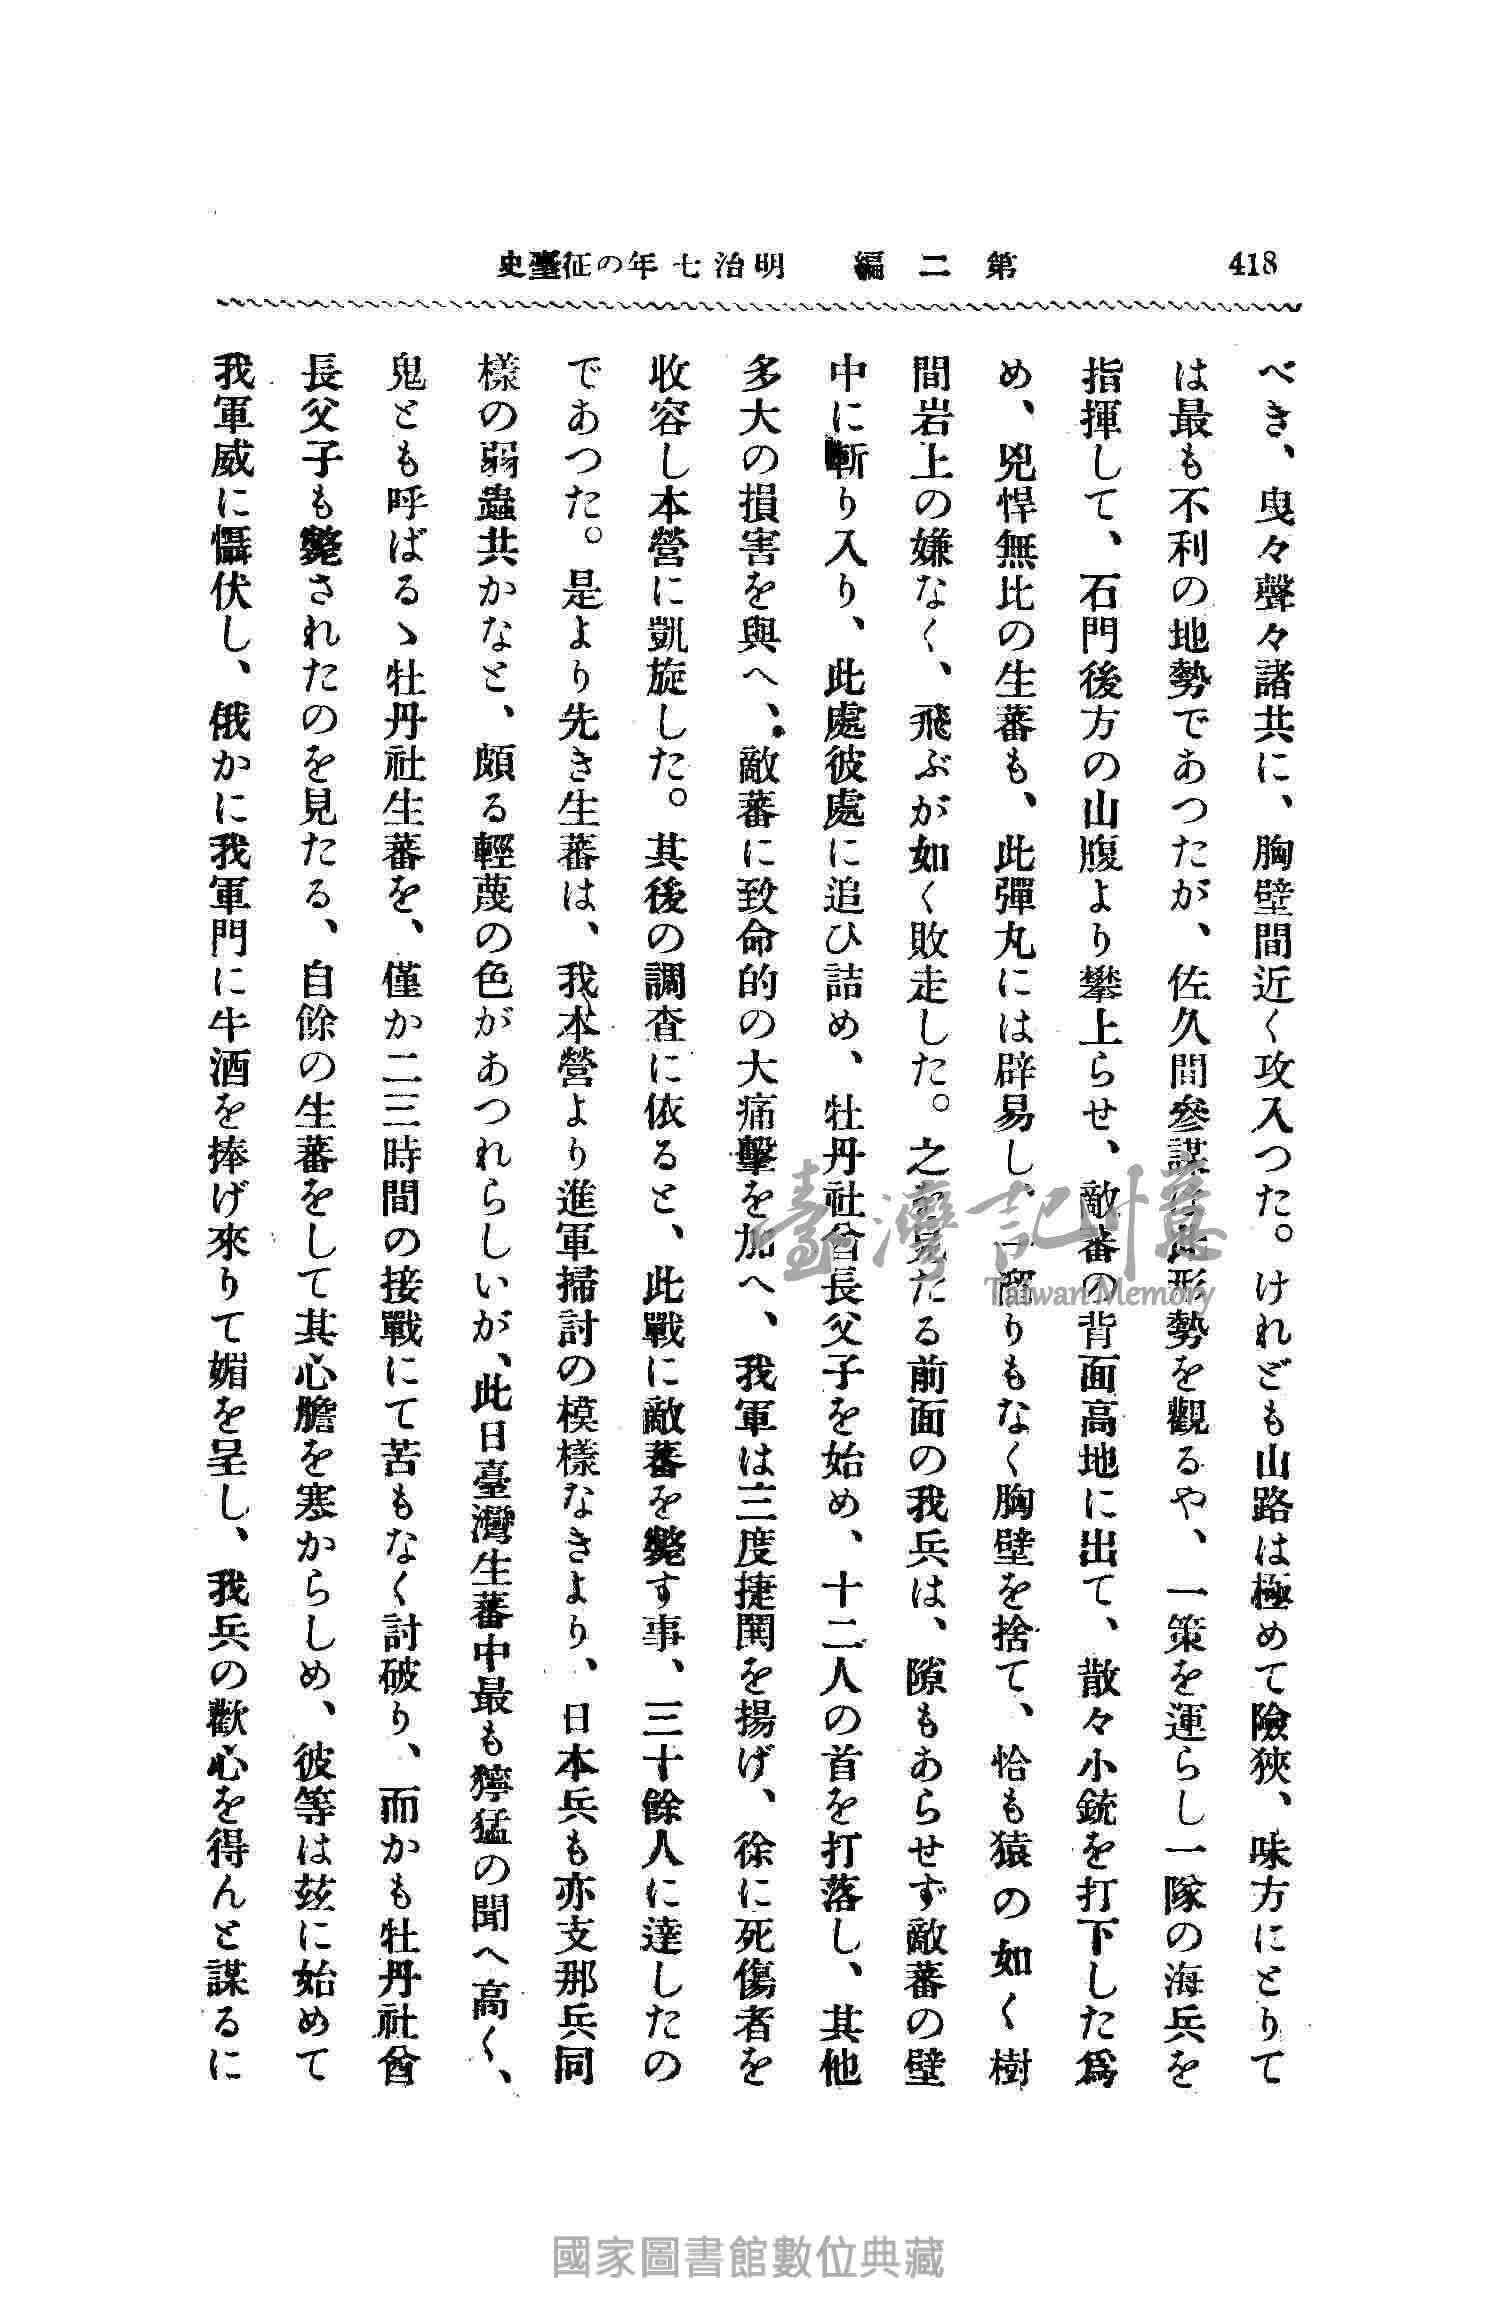 418
第二編 明治七年の征臺史
べき、曳々聲々諸共に、胸壁間近く攻入つた。けれども山路は極めて險狹、味方にとりて
は最も不利の地勢であつたが、佐久間參謀は此形勢を觀るや、一策を運らし一隊の海兵を
指揮して、石門後方の山腹より攀上らせ、敵蕃の背面高地に出て、散々小銃を打下した爲
め、兇悍無比の生蕃も、此彈丸には辟易し、一溜りもなく胸壁を捨て、恰も猿の如く樹
間岩上の嫌なく、飛ぶが如く敗走した。之を見たる前面の我兵は、隙もあらせず敵蕃の壁
中に斬り入り、此處彼處に追ひ詰め、牡丹社酋長父子を始め、十二人の首を打落し、其他
多大の損害を與へ、敵蕃に致命的の大痛擊を加へ、我軍は三度捷鬨を揚げ、徐に死傷者を
收容し本營に凱旋した。其後の調査に依ると、此戰に敵蕃を斃す事、三十餘人に達したの
であつた。是より先き生蕃は、我本營より進軍掃討の模樣なきより、日本兵も亦支那兵同
樣の弱蟲共かなと、頗る輕蔑の色があつれらしいが、此日臺灣生蕃中最も獰猛の聞へ高く、
鬼とも呼ばるゝ牡丹社生蕃を、僅か二三時間の接戰にて苦もなく討破り、而かも牡丹社酋
長父子も斃されたのを見たる、自餘の生蕃をして其心膽を寒からしめ、彼等は玆に始めて
我軍威に懾伏し、俄かに我軍門に牛酒を捧げ來りて媚を呈し、我兵の歡心を得んと謀るに
臺灣記憶
Taiwan Memory
國家圖書館數位典藏